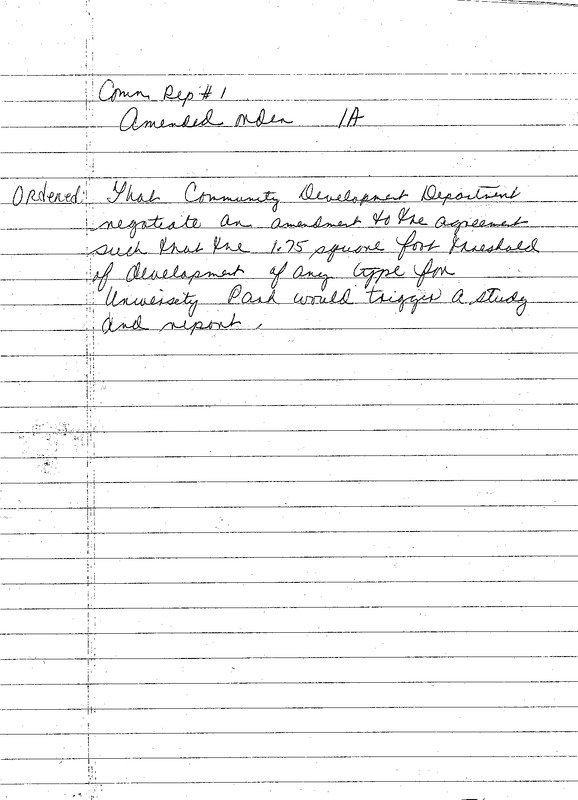 Comm Rep # 1
Amended order 1A
ORdered: That Community Development Department
negotiate an amendment to the agreement
such that the 1.75 square foot threshold
of development of any type for
University Park would trigger a study
and report.